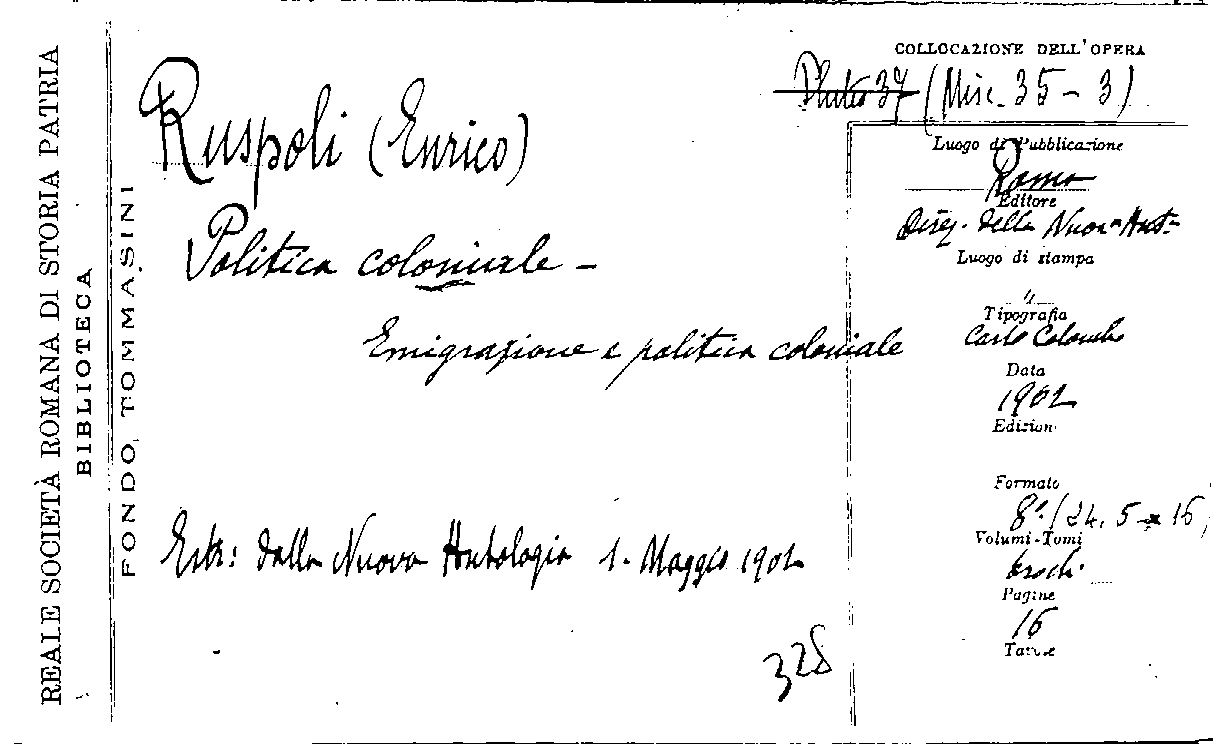 REALE SOCIETÀ ROMANA DI STORIA PATRIA
BIBLIOTECA
FONDO TOMMASINI
COLLOCAZIONE DELL'OPERA
Pluteo 37 (Misc. 35 - 3)
Ruspoli (Enrico)
Politica coloniale -
Emigrazione e politica coloniale
Estr: dalla Nuova Antologia 1. Maggio 1902
328
Luogo di Pubblicazione
Roma
Editore
della Nuova Ant.
Luogo di stampa
"
Tipografia
Carlo Colombo
Data
1902
Edizion
Formato
8° (24,5 x 16)
Volumi-Tomi
Pagine
16
Tavole